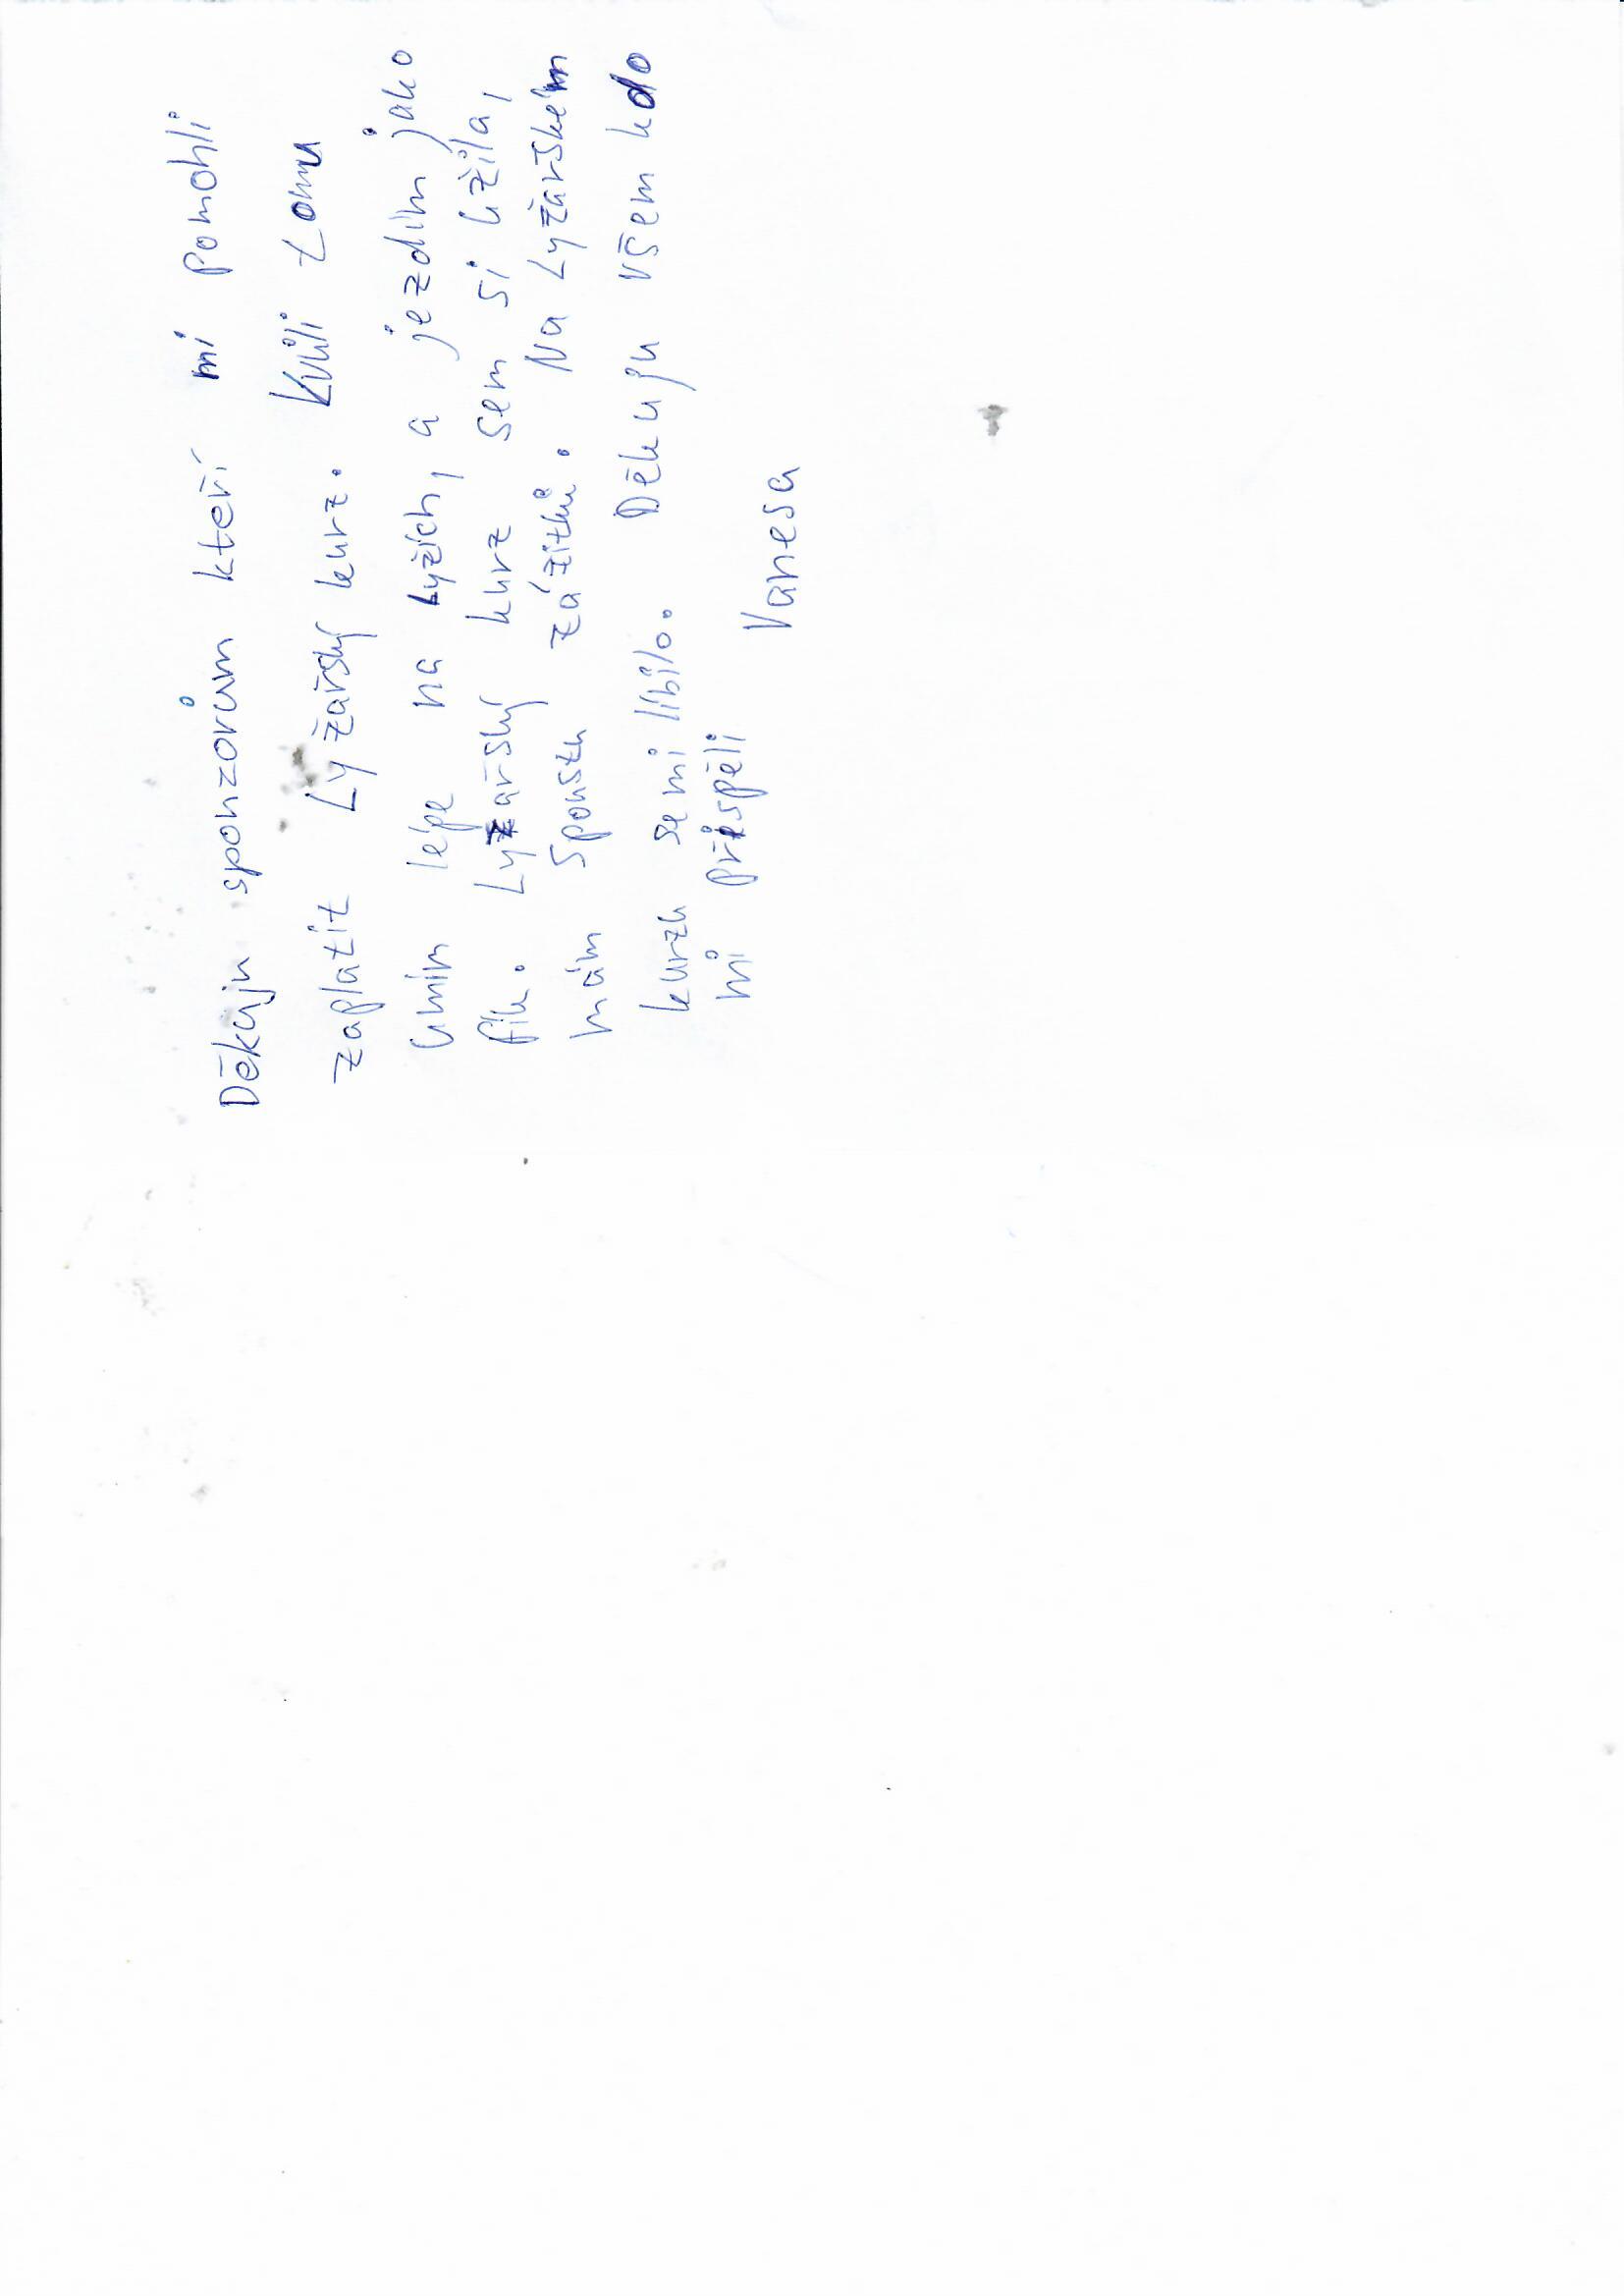 Děkuju sponzorům kteří mi pomohli
zaplatit Lyžařský kurz. Kvůli tomu
umím lépe na Lyžích, a jezdím jako
fík. Lyžařský kurz sem si užila,
mám spoustu zážitků. Na Lyžařském
kurzu se mi líbilo. Děkuju všem kdo
mi přispěli
Vanesa